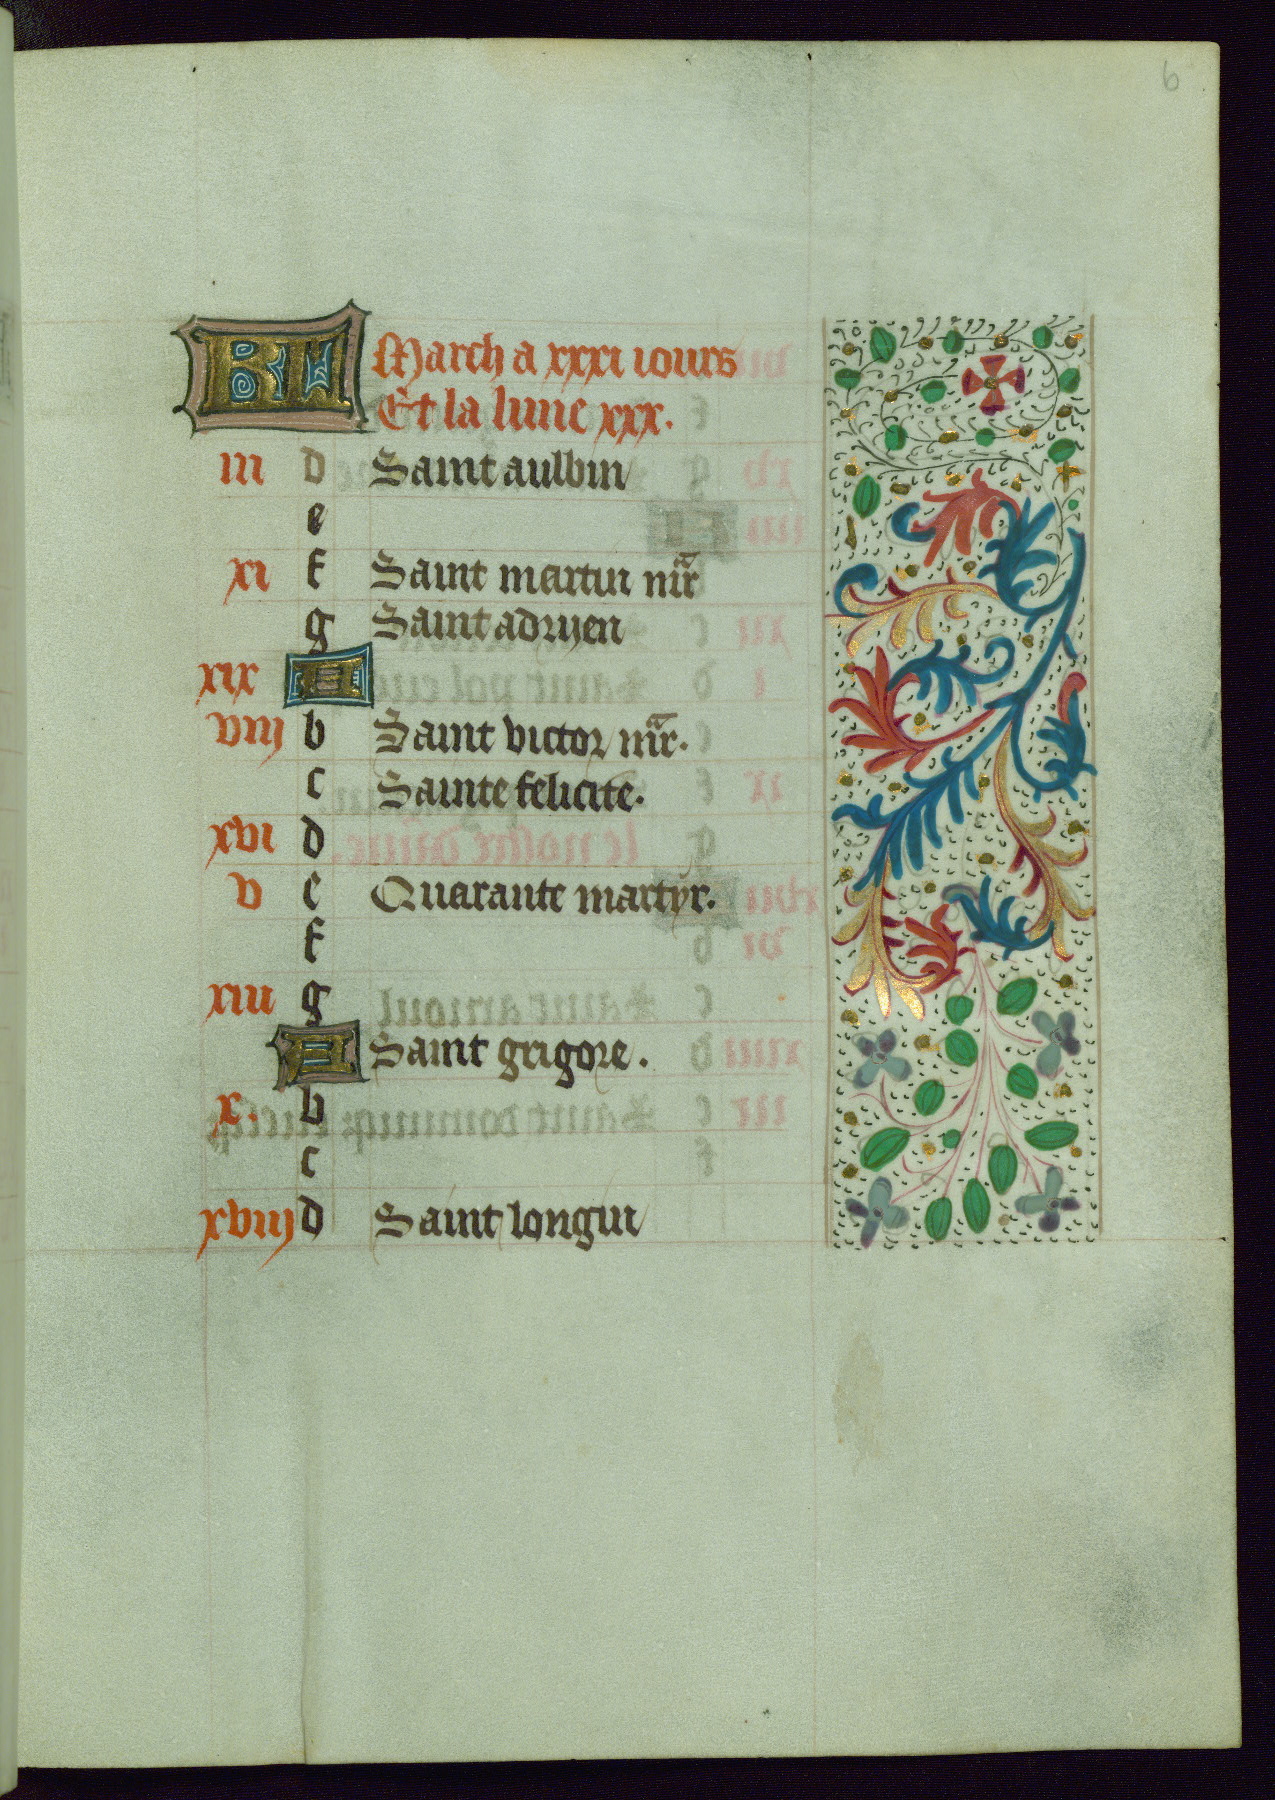 6
KL March a xxxi iours
Et la lune xxx.
iii d Saint aulbin
e
xi f Saint martin mr̄
g Saint adryen
xix A
viij b Saint victor mr̄.
c Sainte felicite.
xvi d
v e Quarante martyr.
f
xiii g
A Saint grigore.
x. b
c
xviij d Saint longin